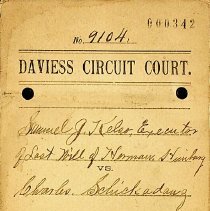 000342
No. 9104.
DAVIESS CIRCUIT COURT.
Samuel J. Kelso, Executor
of Last Will of Herman
VS.
Charles Schickadanz